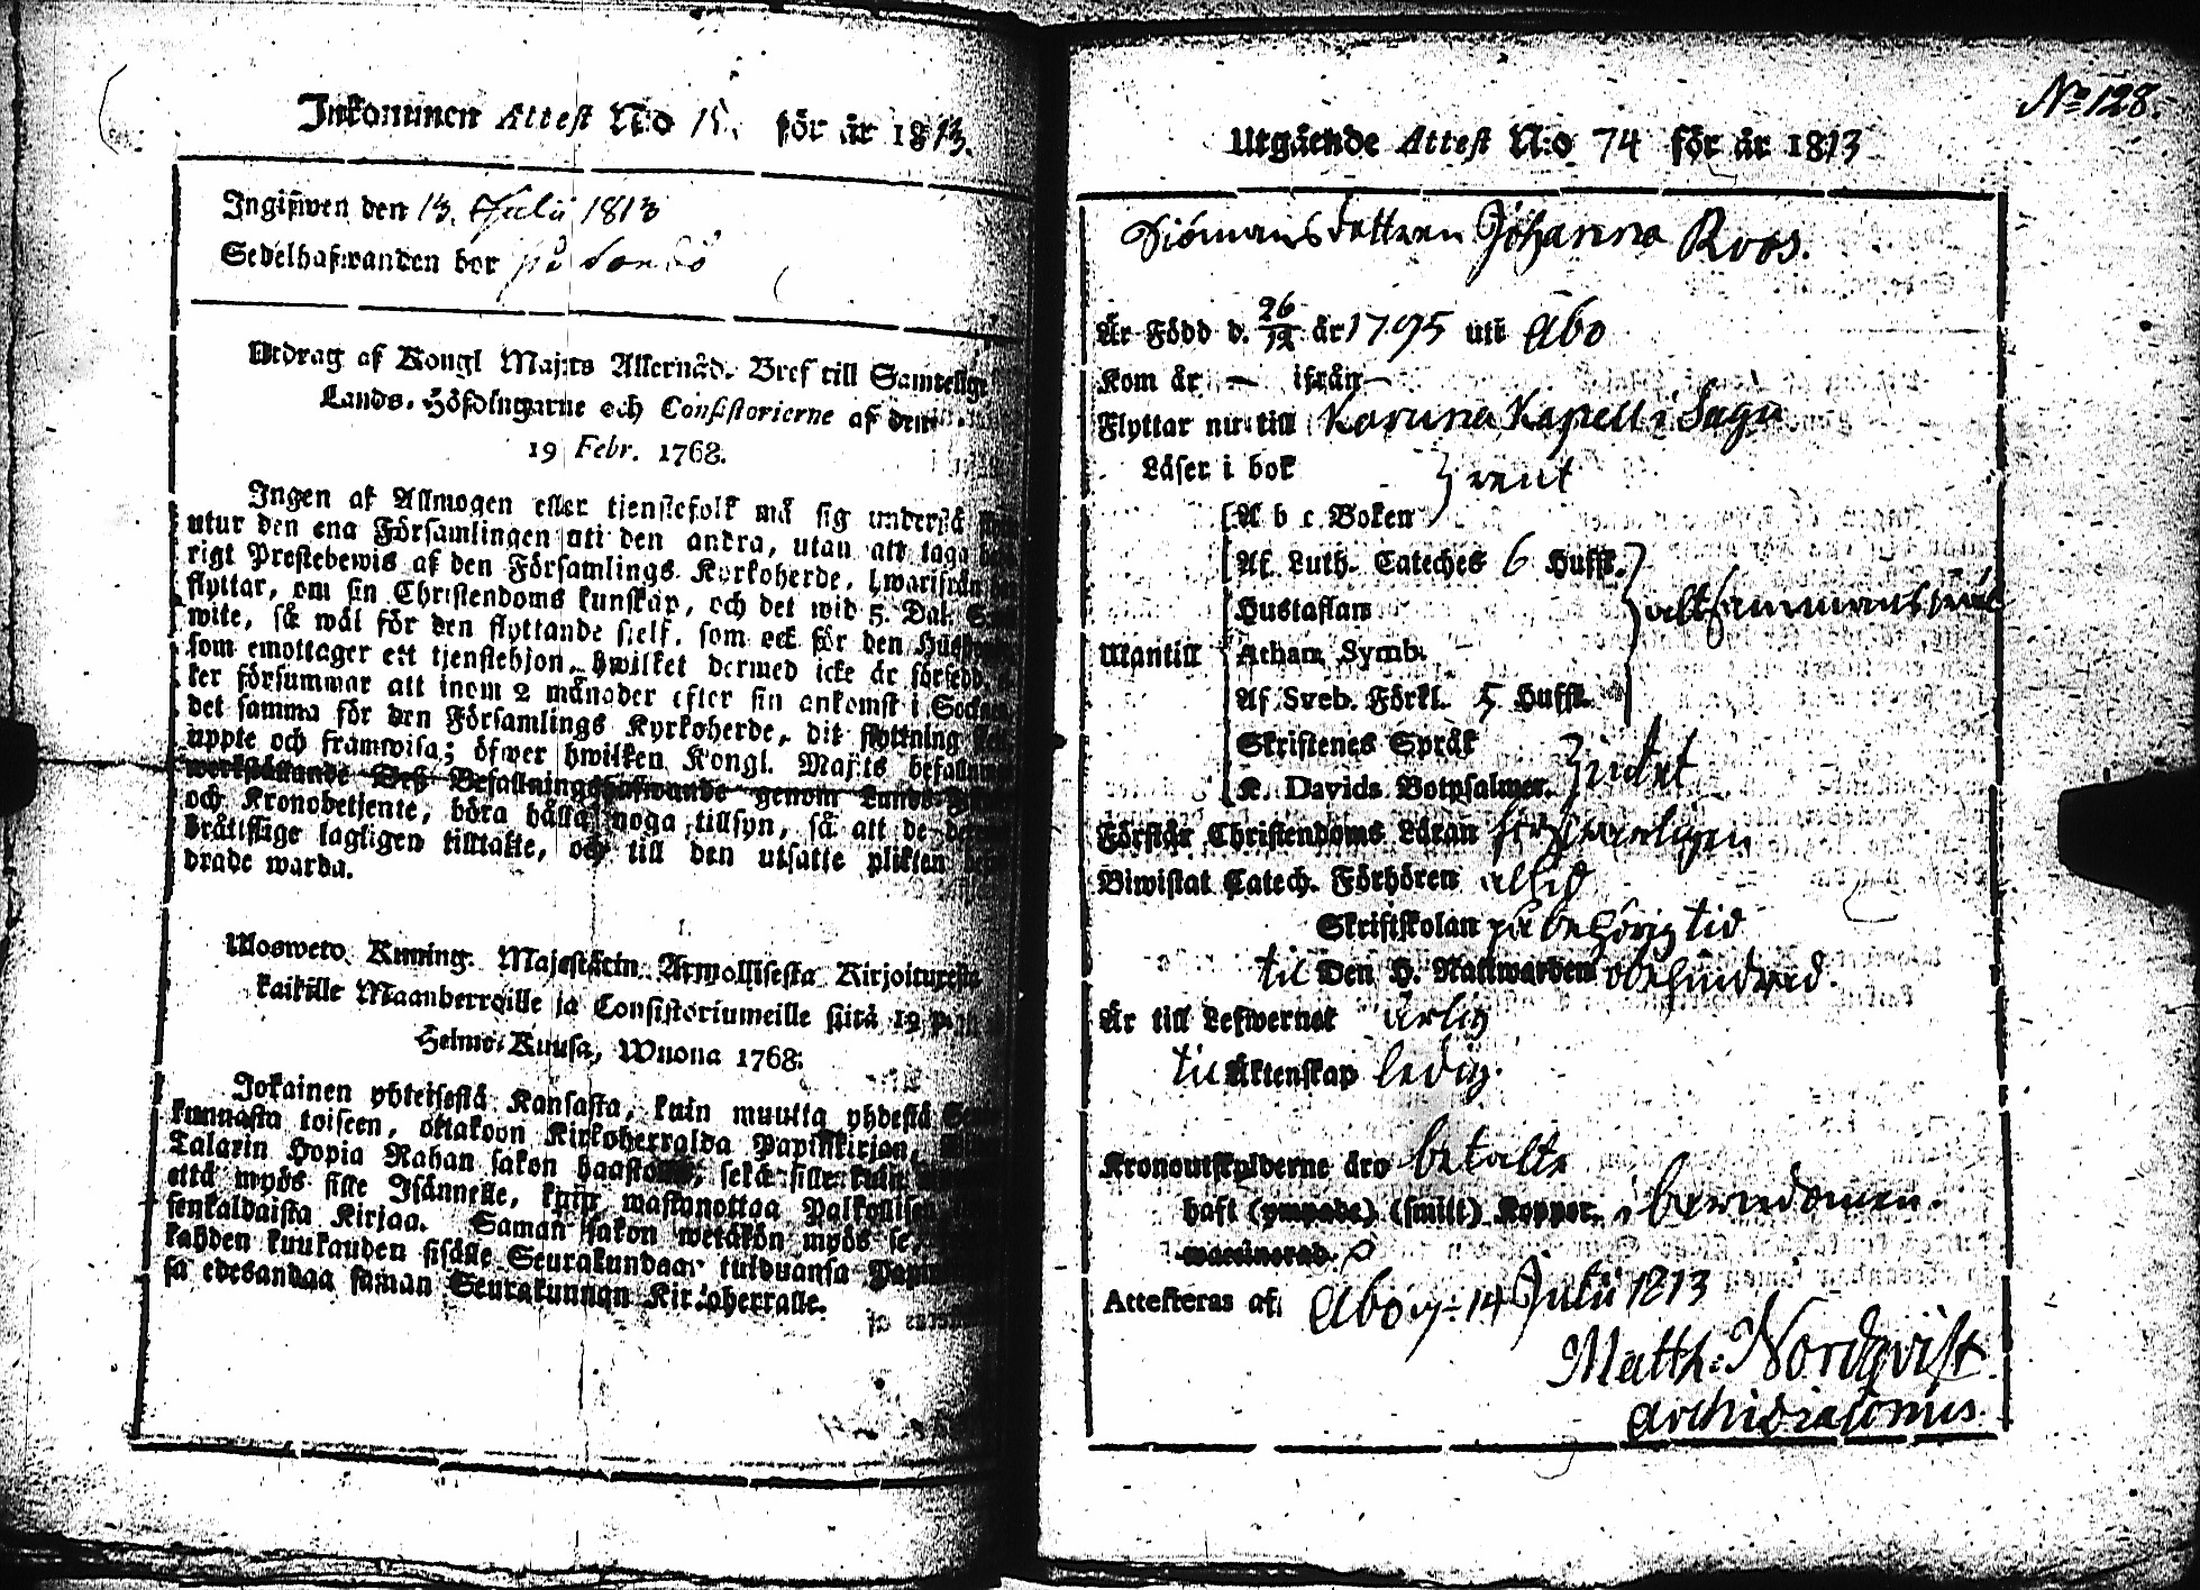 Inkommen Attest N:o 15. för år 1813.
Ingifwen den 13. Julii 1813
Sedelhafwanden bor på
Utdrag af Kongl Maj:ts Allernåd. Bref till Samtelige
Lands-Höfdingarne och Consistorierne af den
19 Febr. 1768.
Ingen af Allmogen eller tjenstefolk må sig understå
utur den ena Församlingen uti den andra, utan att taga
rigt Prestebewis af den Församlings Kyrkoherde, hwarifrån
flyttar, om sin Christendoms kunskap, och det wid 5. Dal.
wite, så wäl för den flyttande sielf, som ock för den
som emottager ett tjenstehjon, hwilket dermed icke är försedd,
ker försummar att inom 2 månader efter sin ankomst i
det samma för den Församlings Kyrkoherde, dit flyttning
uppte och framwisa; öfwer hwilken Kongl. Maj:ts befallning
werkställande Deß Befallningshafwande genom Lands
och Kronobetjente, böra hålla noga tillsyn, så att de
bråttslige lagligen tilltalte, och till den utsatte plikten
drade warda.
Ulosweto Kuning. Majestätin Armollisesta Kirjoituresta
kaikille Maanherroille ja Consistoriumeille siitä 19 p:nä
Helme-Kuusa, Wuona 1768.
Jokainen yhteisestä Kansasta, kuin muutta yhdestä
kunnasta toiseen, ottakoon Kirkoherralda Papinkirjan,
Talarin Hopia Rahan sakon haastolla, sekä sille kuin
että myös sille Isännelle, kuin wastanottaa Palkollisen
senkaldaista Kirjaa. Saman sakon wetäkön myös se,
kahden kuukauden sisälle Seurakundaan tulduansa
sa edesandaa saman Seurakunnan Kirkoherralle.
No 128.
Utgående Attest N:o 74 för år 1813
Siömansdottren Johanna Roos.
Är Född d. 26/12 år 1795 uti Åbo
Kom år — ifrån —
Flyttar nu till Karuna Kapell i Sagu
Läser i bok } rent
A b c Boken
Af Luth. Cateches 6 Hufst.
Hustaflan } altsammans
Utantill Athan. Symb.
Af Sveb. Förkl. 5 Hufst.
Skriftenes Språk
K. Davids Botpsalmer.
Förstår Christendoms Läran
Biwistat Catech. Förhören altid
Skriftskolan på behörig tid
til Den H. Nattwarden obehindrad.
Är till Lefwernet ärlig
til Äktenskap ledig.
Kronoutskylderne äro betalte
haft (ympade) (smitt) Koppor i barndomen.
waccinerad.
Attesteras af. Åbo d. 14 Julii 1813
Matth: Nordqvist.
Archidiaconus.